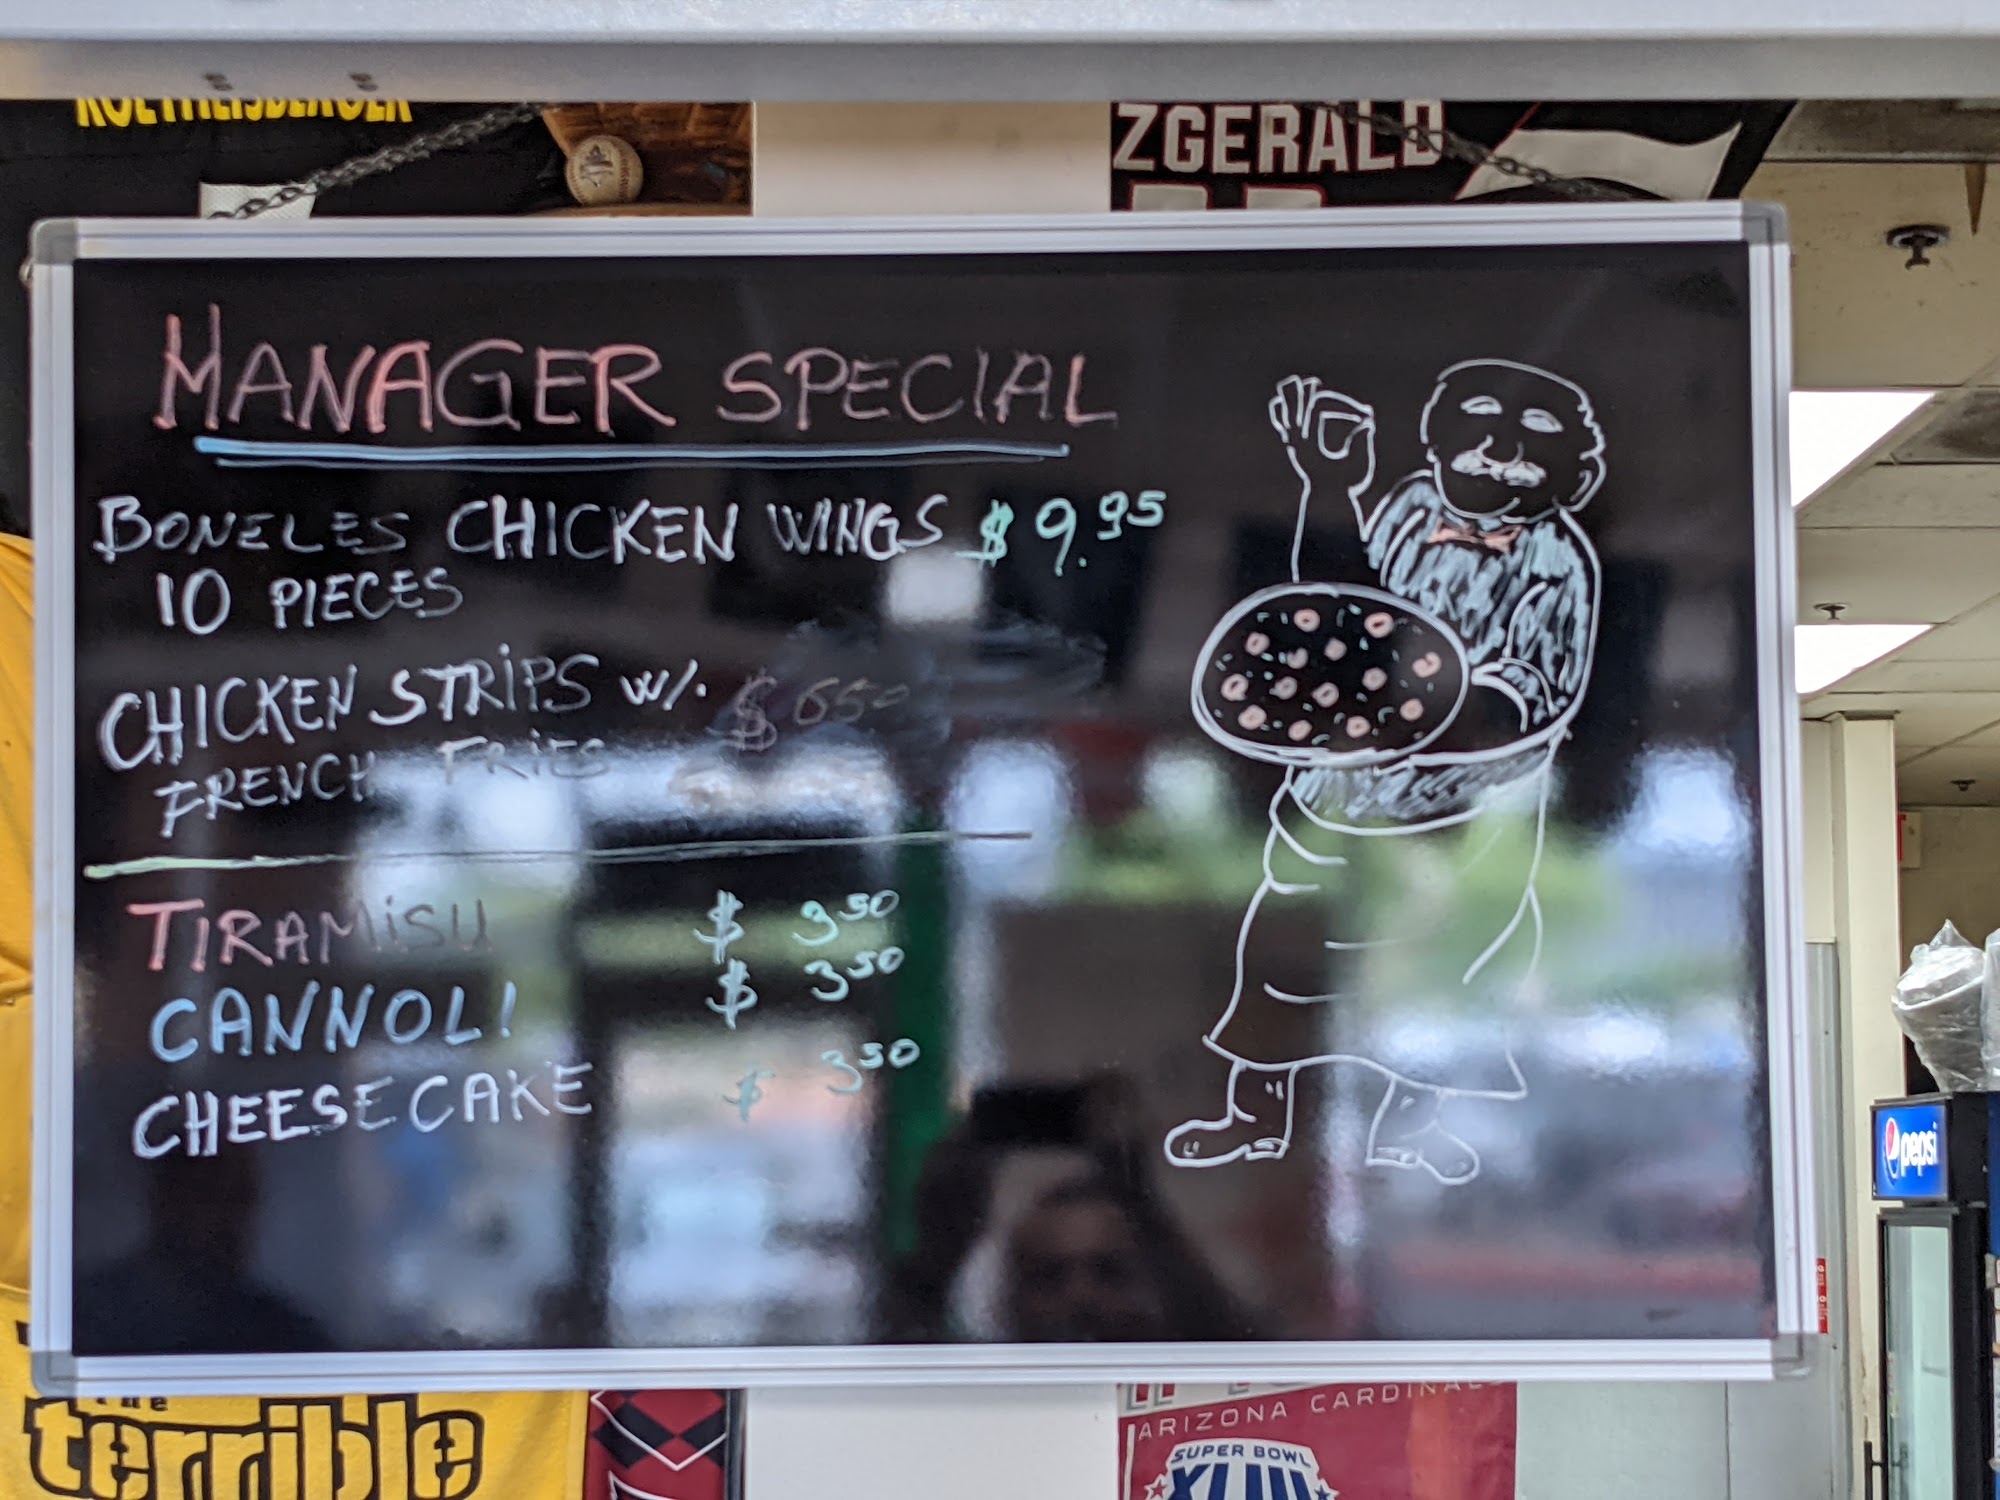 ROETHLISBERGER
ZGERALD
MANAGER SPECIAL
BONELES CHICKEN WINGS $ 9.95
10 PIECES
CHICKEN STRIPS W/. $ 650
FRENCH FRIES
TIRAMiSU $ 350
CANNOLI $ 350
CHEESECAKE $ 350
pepsi
the
terrible
ARIZONA CARDINALS
SUPER BOWL
XLIII